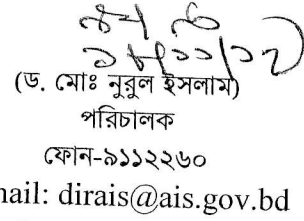 (ড. মোঃ নুরুল ইসলাম)
পরিচালক
ফোন-৯১১২২৬০
nail: dirais@ais.gov.bd